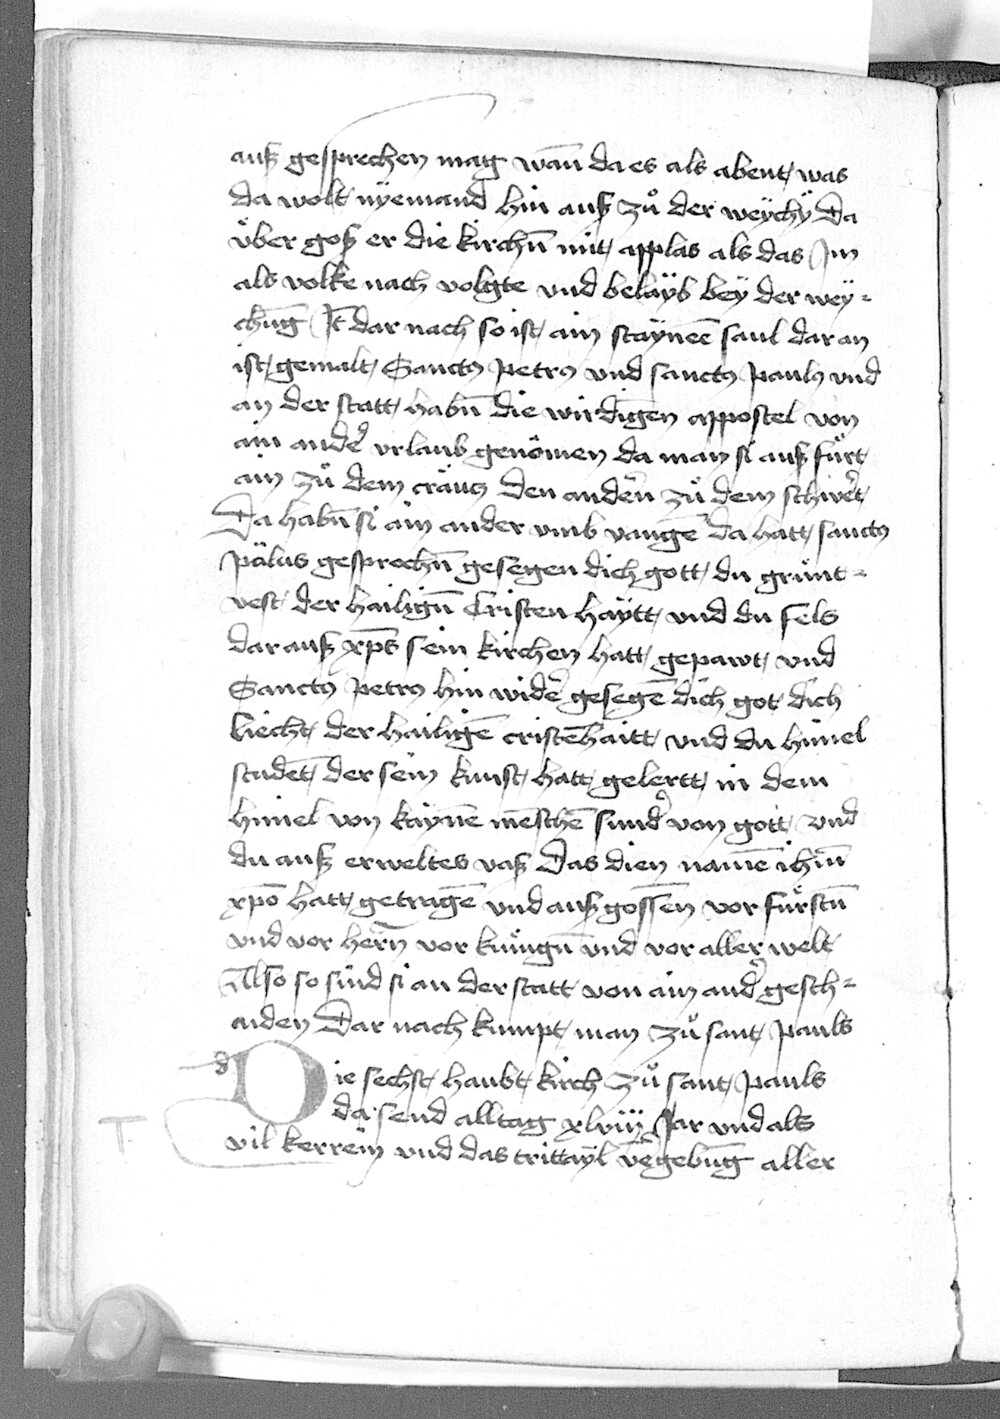 auß gesprechen mag wān da es als abent was
da wolt nÿemand hin auß zů der weÿchÿ Da
über goß er die kirchn̄ mit applas als das Im
als volke nach volgte vnd belaÿb beÿ der weÿ-
chūg It̄ dar nach so ist ain staÿnee saul dar an
ist gemalt Sanctꝰ petrꝰ vnd sanctꝰ paulꝰ vnd
an der statt habn̄ die wirdigen appostel von
ain ander vrlaub genōmen da man si auß fürt
ain zů dem cräucz den andern zů dem schwert
Da habn̄ si ain ander vmb vangē da hatt sanctꝰ
pālus gesprochn̄ gesegen dich gott du grünt-
vest der hailign̄ Cristen haÿtt vnd du fels
dar auß xp̄s sein kirchen hatt gepawt vnd
Sanctꝰ petrꝰ hin wider gesegē dich got dich
liecht der hailigē cristēhaitt vnd du himel
studēt der sein kunst hatt gelertt in dem
himel von kaynē mēschē sunder von gott vnd
du auß erweltes vaß Das dien namē ihm̄
xp̄o hatt getragē vnd auß gossen vor fürstn̄
vnd vor hern̄ vor künign̄ vnd vor aller welt
Also so sind si an der statt von ain ander gesch-
aiden Dar nach kumpt man zů sant pauls
Die sechst haubt kirch zů sant pauls
da send alltag xlviij Jar vnd als
vil kerrein vnd das trittaÿl vergebūg aller